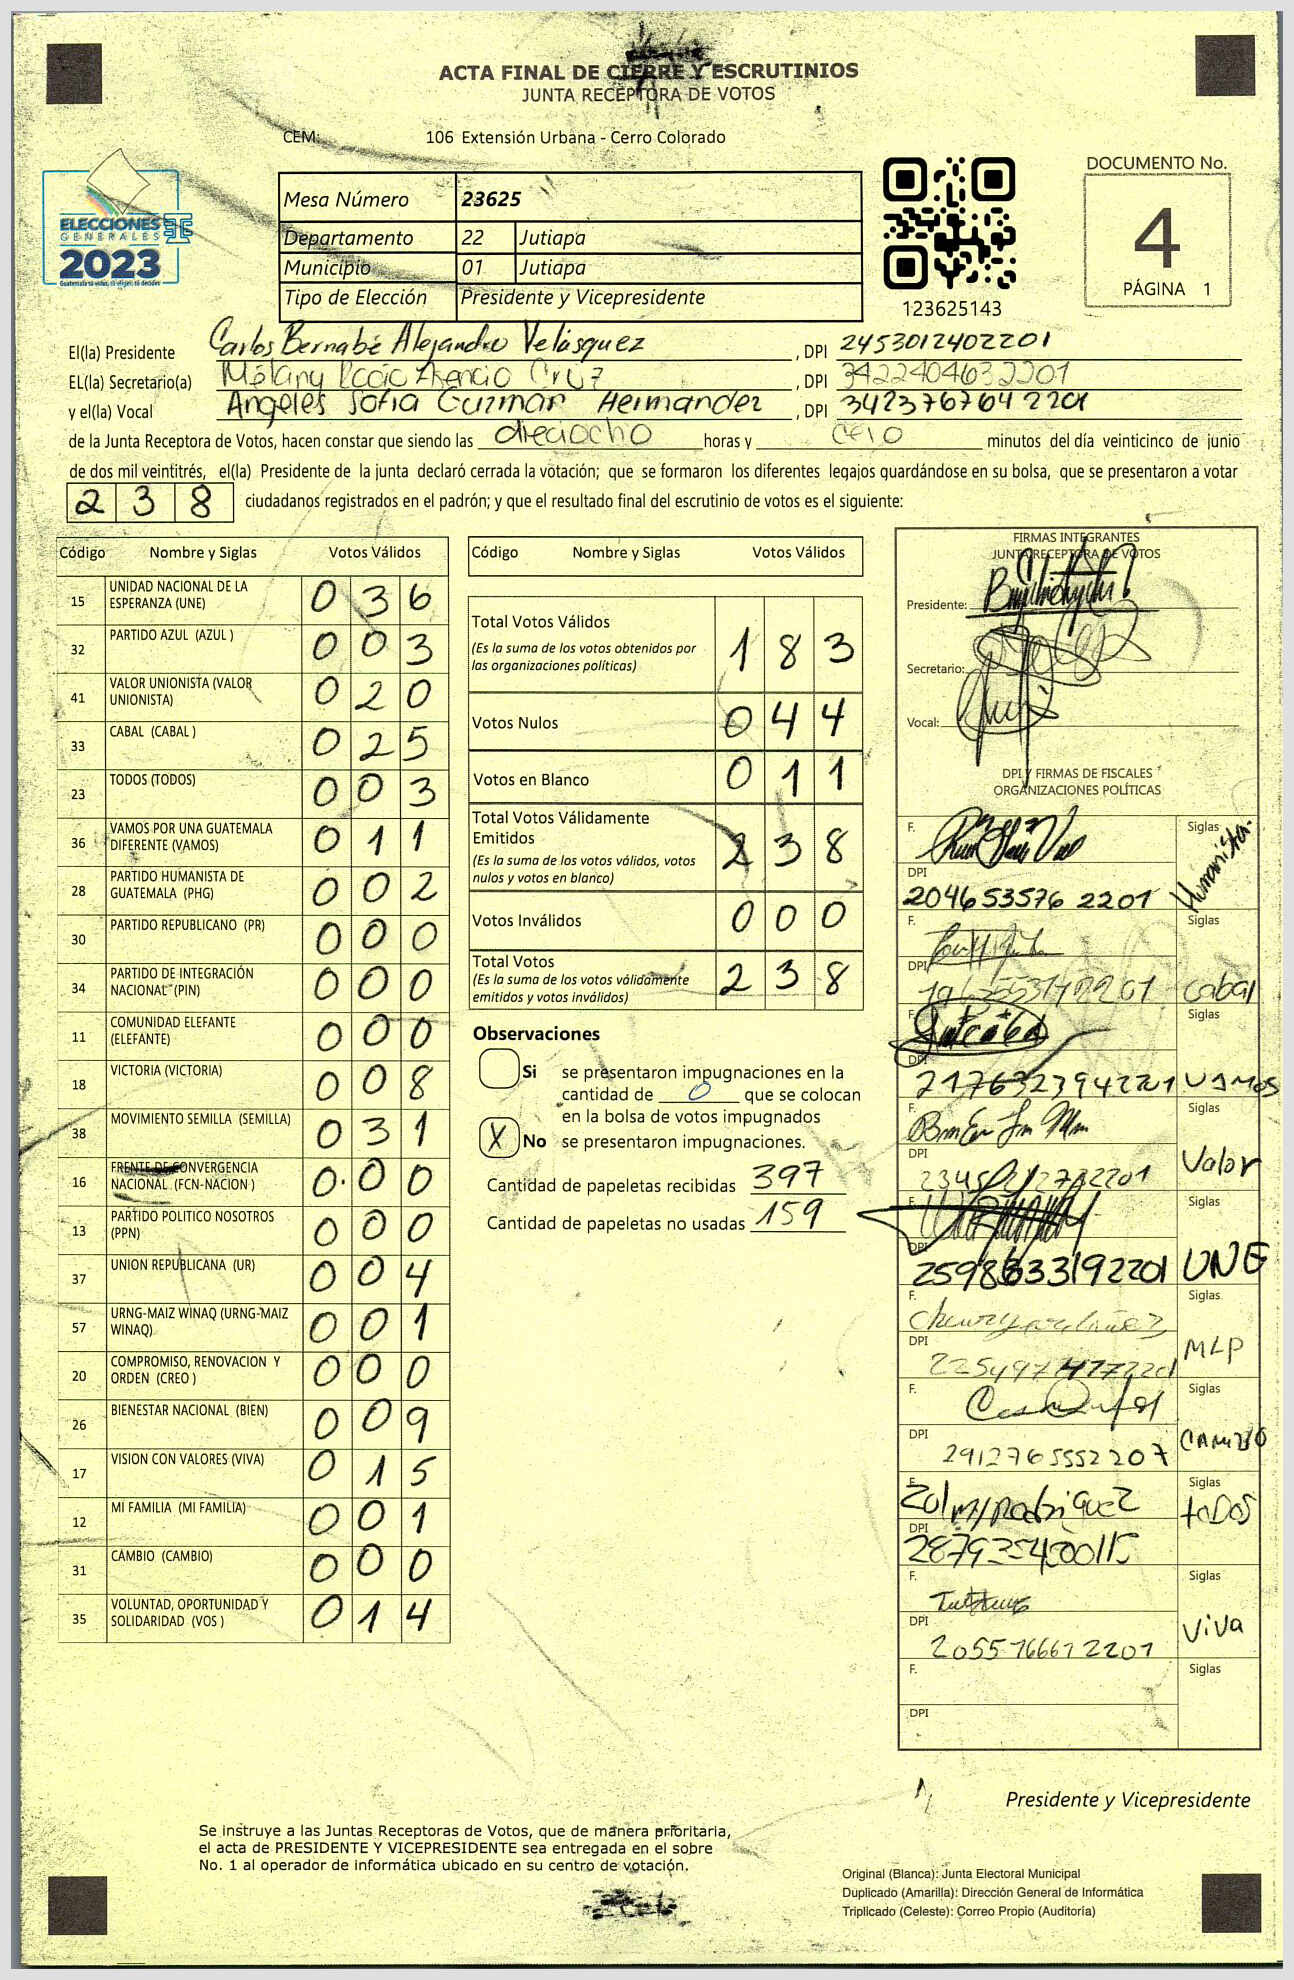 ACTA FINAL DE CIERRE Y ESCRUTINIOS
JUNTA RECEPTORA DE VOTOS
CEM: 106 Extensión Urbana - Cerro Colorado
ELECCIONES
GENERALES
2023
Guatemala tú votas, tú eliges, tú decides
Mesa Número 23625
Departamento 22 Jutiapa
Municipio 01 Jutiapa
Tipo de Elección Presidente y Vicepresidente
123625143
DOCUMENTO No.
4
PÁGINA 1
El(la) Presidente Carlos Bernabé Alejandro Velásquez , DPI 2453012402201
EL(la) Secretario(a) Cruz , DPI 3422404632201
y el(la) Vocal Angeles Sofia Guzman Hernandez , DPI 3423767642201
de la Junta Receptora de Votos, hacen constar que siendo las dieciocho horas y cero minutos del día veinticinco de junio
de dos mil veintitrés, el(la) Presidente de la junta declaró cerrada la votación; que se formaron los diferentes legajos guardándose en su bolsa, que se presentaron a votar
238 ciudadanos registrados en el padrón; y que el resultado final del escrutinio de votos es el siguiente:
Código Nombre y Siglas Votos Válidos
15 UNIDAD NACIONAL DE LA ESPERANZA (UNE) 036
32 PARTIDO AZUL (AZUL ) 003
41 VALOR UNIONISTA (VALOR UNIONISTA) 020
33 CABAL (CABAL ) 025
23 TODOS (TODOS) 003
36 VAMOS POR UNA GUATEMALA DIFERENTE (VAMOS) 011
28 PARTIDO HUMANISTA DE GUATEMALA (PHG) 002
30 PARTIDO REPUBLICANO (PR) 000
34 PARTIDO DE INTEGRACIÓN NACIONAL (PIN) 000
11 COMUNIDAD ELEFANTE (ELEFANTE) 000
18 VICTORIA (VICTORIA) 008
38 MOVIMIENTO SEMILLA (SEMILLA) 031
16 FRENTE DE CONVERGENCIA NACIONAL (FCN-NACION ) 000
13 PARTIDO POLITICO NOSOTROS (PPN) 000
37 UNION REPUBLICANA (UR) 004
57 URNG-MAIZ WINAQ (URNG-MAIZ WINAQ) 001
20 COMPROMISO, RENOVACION Y ORDEN (CREO ) 000
26 BIENESTAR NACIONAL (BIEN) 009
17 VISION CON VALORES (VIVA) 015
12 MI FAMILIA (MI FAMILIA) 001
31 CAMBIO (CAMBIO) 000
35 VOLUNTAD, OPORTUNIDAD Y SOLIDARIDAD (VOS ) 014
Código Nombre y Siglas Votos Válidos
Total Votos Válidos 183
(Es la suma de los votos obtenidos por
las organizaciones políticas)
Votos Nulos 044
Votos en Blanco 011
Total Votos Válidamente
Emitidos 238
(Es la suma de los votos válidos, votos
nulos y votos en blanco)
Votos Inválidos 000
Total Votos 238
(Es la suma de los votos válidamente
emitidos y votos inválidos)
Observaciones
Si se presentaron impugnaciones en la
cantidad de 0 que se colocan
en la bolsa de votos impugnados
X No se presentaron impugnaciones.
Cantidad de papeletas recibidas 397
Cantidad de papeletas no usadas 159
FIRMAS INTEGRANTES
JUNTA RECEPTORA DE VOTOS
Presidente:
Secretario:
Vocal:
DPI Y FIRMAS DE FISCALES
ORGANIZACIONES POLÍTICAS
F. Siglas Humanista
DPI 2046535762201
F. Siglas Cabal
DPI
F. Siglas VAMOS
DPI 2176323942201
F. Siglas Valor
DPI
F. Siglas UNE
DPI
F. Siglas MLP
DPI
F. Siglas CAMBIO
DPI 2912765552207
F. Zulmy Rodriguez Siglas toDOS
DPI
F. Siglas ViVa
DPI
F. Siglas
DPI
Presidente y Vicepresidente
Se instruye a las Juntas Receptoras de Votos, que de manera prioritaria,
el acta de PRESIDENTE Y VICEPRESIDENTE sea entregada en el sobre
No. 1 al operador de informática ubicado en su centro de votación.
Original (Blanca): Junta Electoral Municipal
Duplicado (Amarilla): Dirección General de Informática
Triplicado (Celeste): Correo Propio (Auditoría)